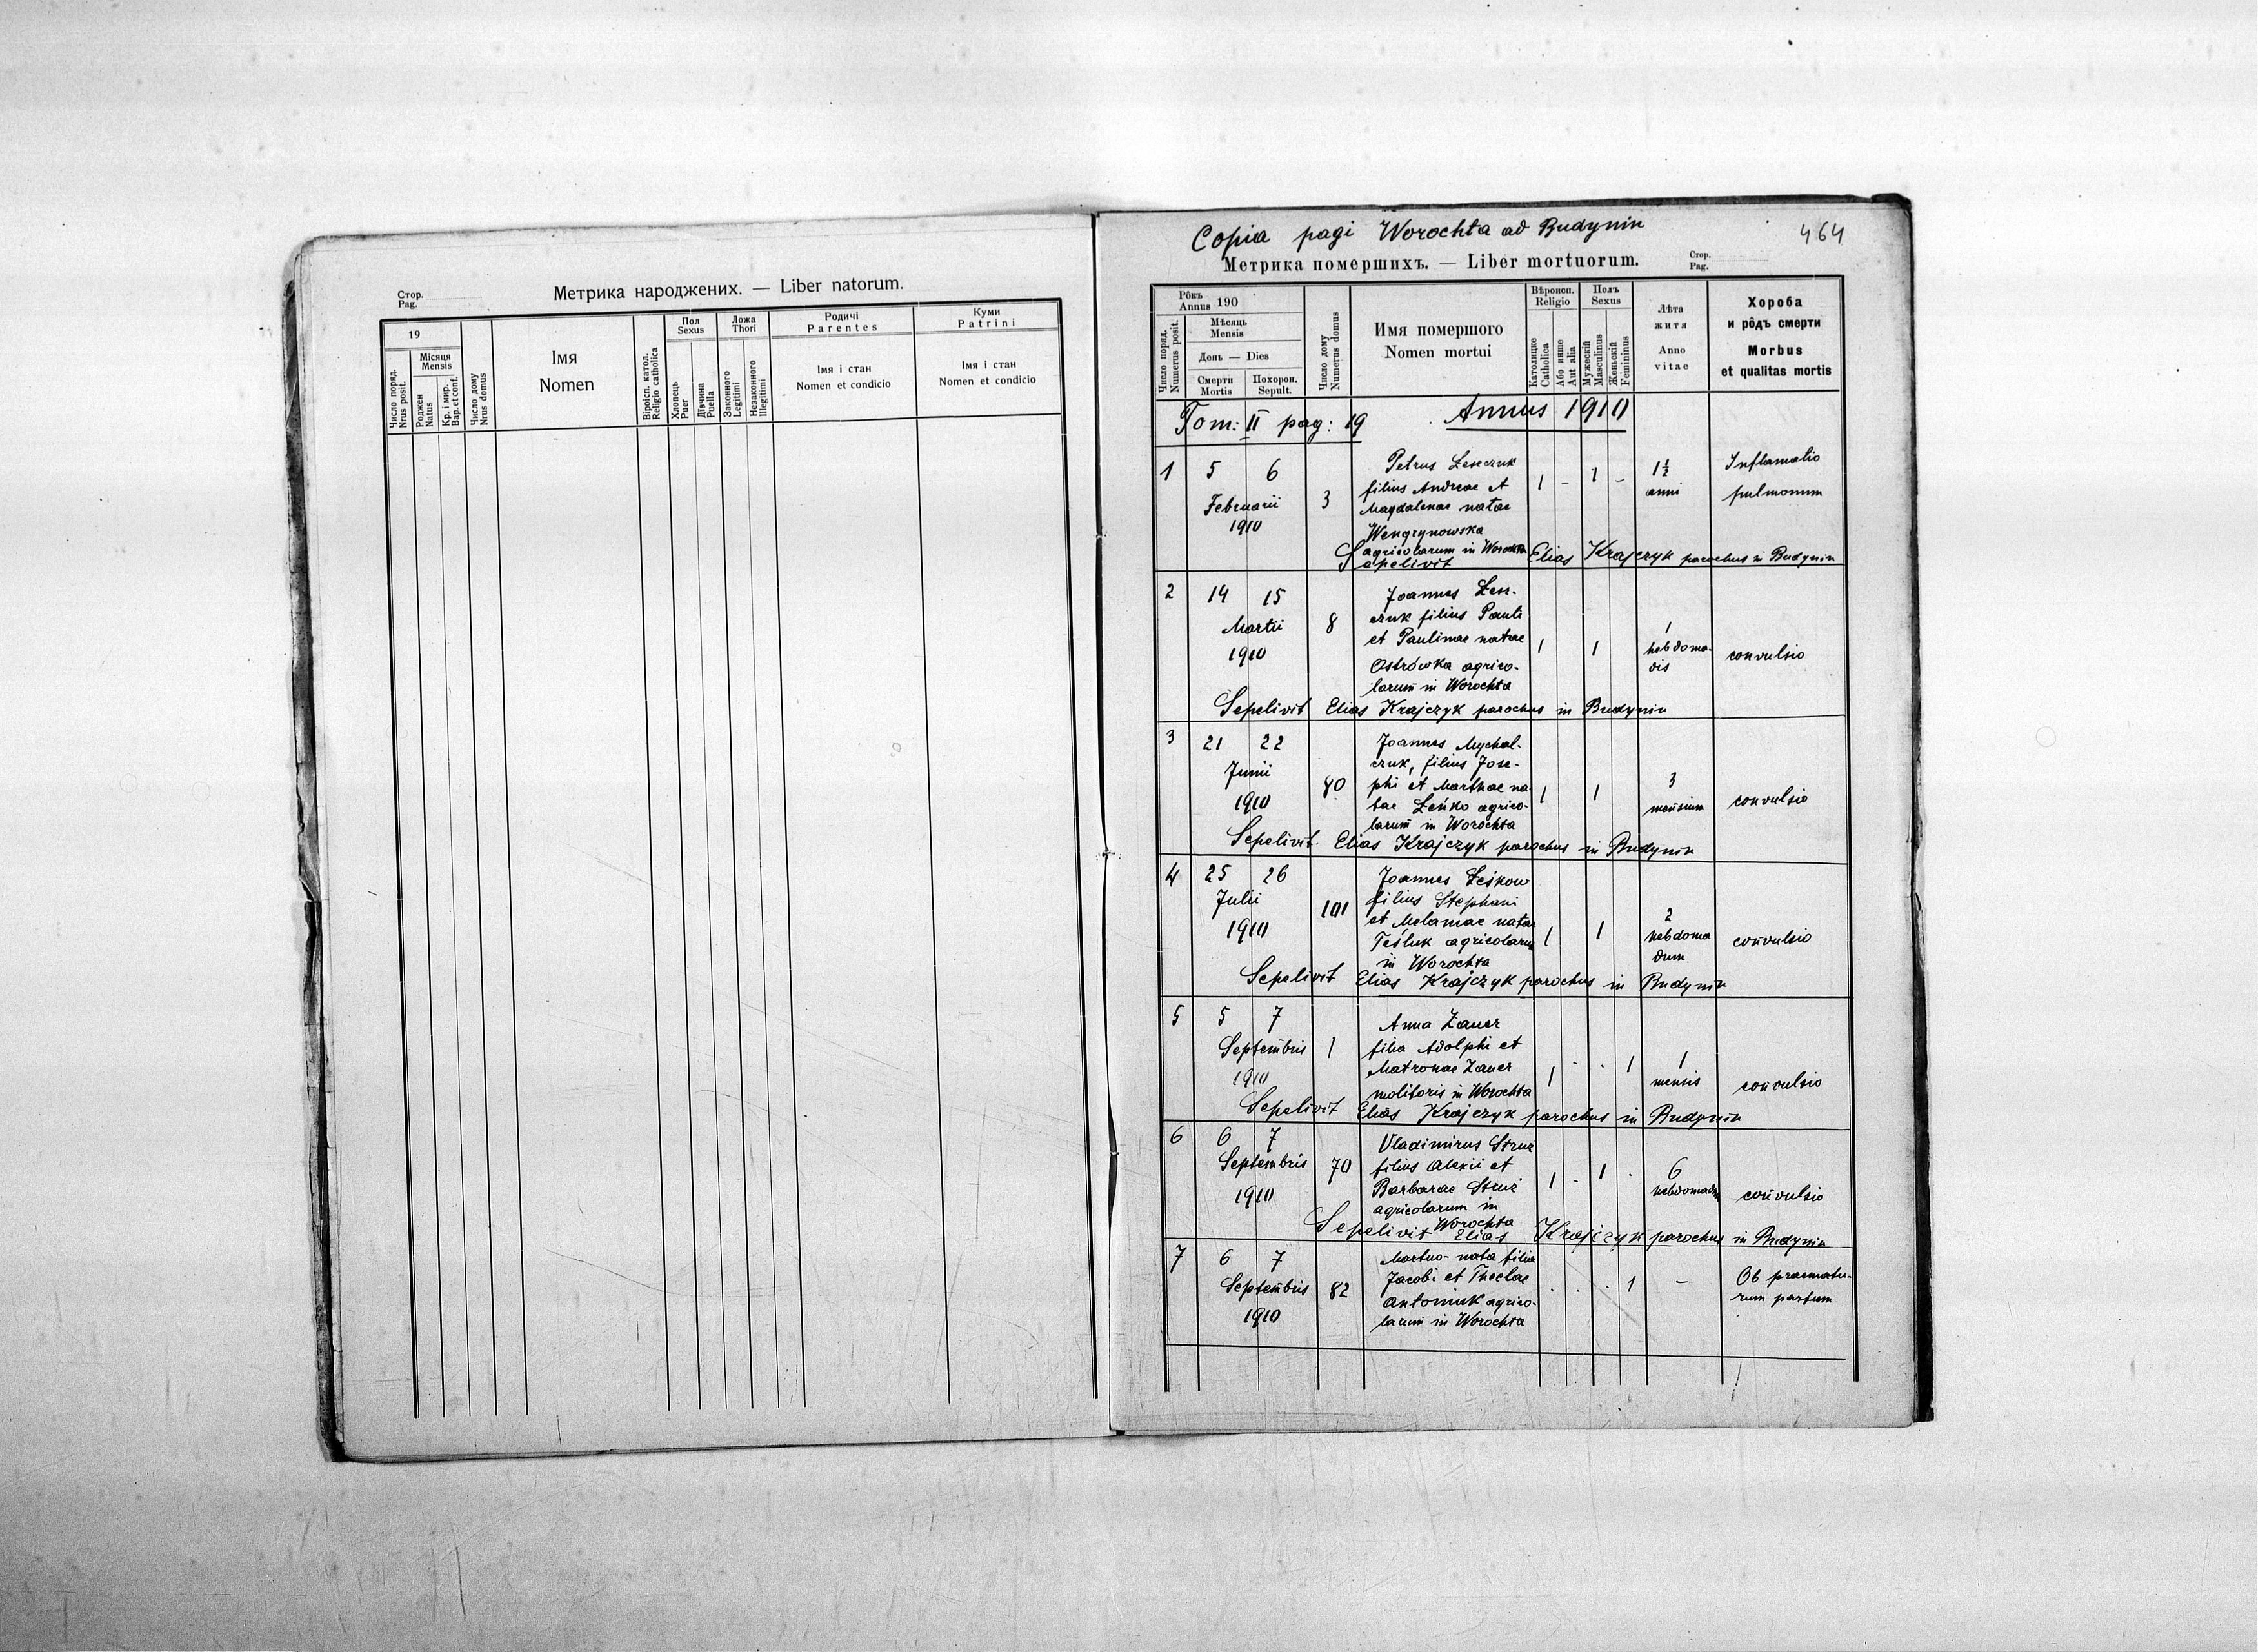 Стор.
Pag.
Метрика народжених. — Liber natorum.
19
Місяця
Mensis
Число поряд.
Nrus posit.
Роджен
Natus
Кр. і мир.
Bap. et conf.
Число дому
Nrus domus
Імя
Nomen
Віроісп. катол.
Religio catholica
Пол
Sexus
Хлопець
Puer
Дівчина
Puella
Ложа
Thori
Законного
Legitimi
Незаконного
Illegitimi
Родичі
Parentes
Імя і стан
Nomen et condicio
Куми
Patrini
Імя і стан
Nomen et condicio
Copia pagi Worochta ad Budynin
464
Метрика помершихъ. — Liber mortuorum.
Стор.
Pag.
Рôкъ
Annus 190
Число поряд.
Numerus posit.
Мѣсяць
Mensis
День — Dies
Смерти
Mortis
Похорон.
Sepult.
Число дому
Numerus domus
Имя помершого
Nomen mortui
Вѣроисп.
Religio
Католицке
Catholica
Або инше
Aut alia
Полъ
Sexus
Мужескій
Masculinus
Женьскій
Femininus
Лѣта
житя
Anno
vitae
Хороба
и рôдъ смерти
Morbus
et qualitas mortis
Tom: II pag: 19 Annus 1910
1 5 6
Februarii
1910
3
Petrus Leszczuk
filius Andreae et
Magdalenae natae
Wengrynowska
agricolarum in Worochta
1 - 1 -
1½
anni
Inflamatio
pulmonum
Sepelivit Elias Krajczyk parochus in Budynin
2 14 15
Martii
1910
8
Joannes Lesz-
czuk filius Pauli
et Paulinae natae
Ostrówka agrico-
larum in Worochta
1 1
1
hebdoma-
dis
convulsio
Sepelivit Elias Krajczyk parochus in Budynin
3 21 22
Junii
1910
80
Joannes Mychal-
czuk, filius Jose-
phi et Marthae na-
tae Leńko agrico-
larum in Worochta
1 1
3
mensium
convulsio
Sepelivit Elias Krajczyk parochus in Budynin
4 25 26
Julii
1910
101
Joannes Leśkow
filius Stephani
et Melaniae natae
Teśluk agricolarum
in Worochta
1 1
2
hebdoma
dum
convulsio
Sepelivit Elias Krajczyk parochus in Budynin
5 5 7
Septembris
1910
1
Anna Zauer
filia Adolphi et
Matronae Zauer
molitoris in Worochta
1 . . 1
1
mensis
convulsio
Sepelivit Elias Krajczyk parochus in Budynin
6 6 7
Septembris
1910
70
Vladimirus Struż
filius Alexii et
Barbarae Struż
agricolarum in
Worochta
1 . 1 .
6
hebdomadum
convulsio
Sepelivit Elias Krajczyk parochus in Budynin
7 6 7
Septembris
1910
82
Mortuo-nata filia
Jacobi et Theclae
Antoniuk agrico-
larum in Worochta
. . . 1
—
Ob praematu-
rum partum